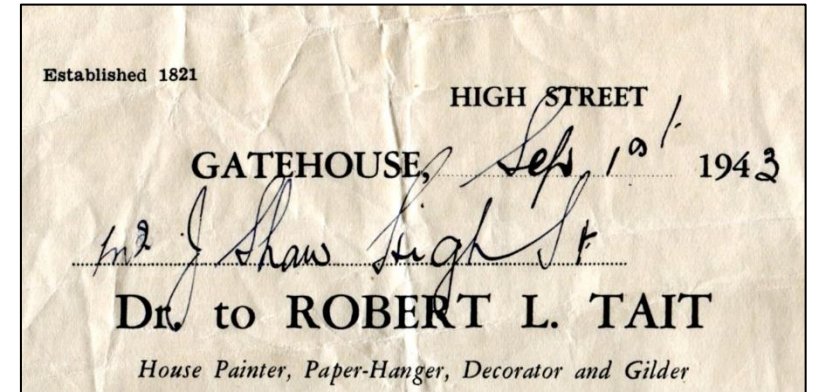 Established 1821
HIGH STREET
GATEHOUSE, Sep. 1st 1943
Mr J Shaw High St
Dr. to ROBERT L. TAIT
House Painter, Paper-Hanger, Decorator and Gilder